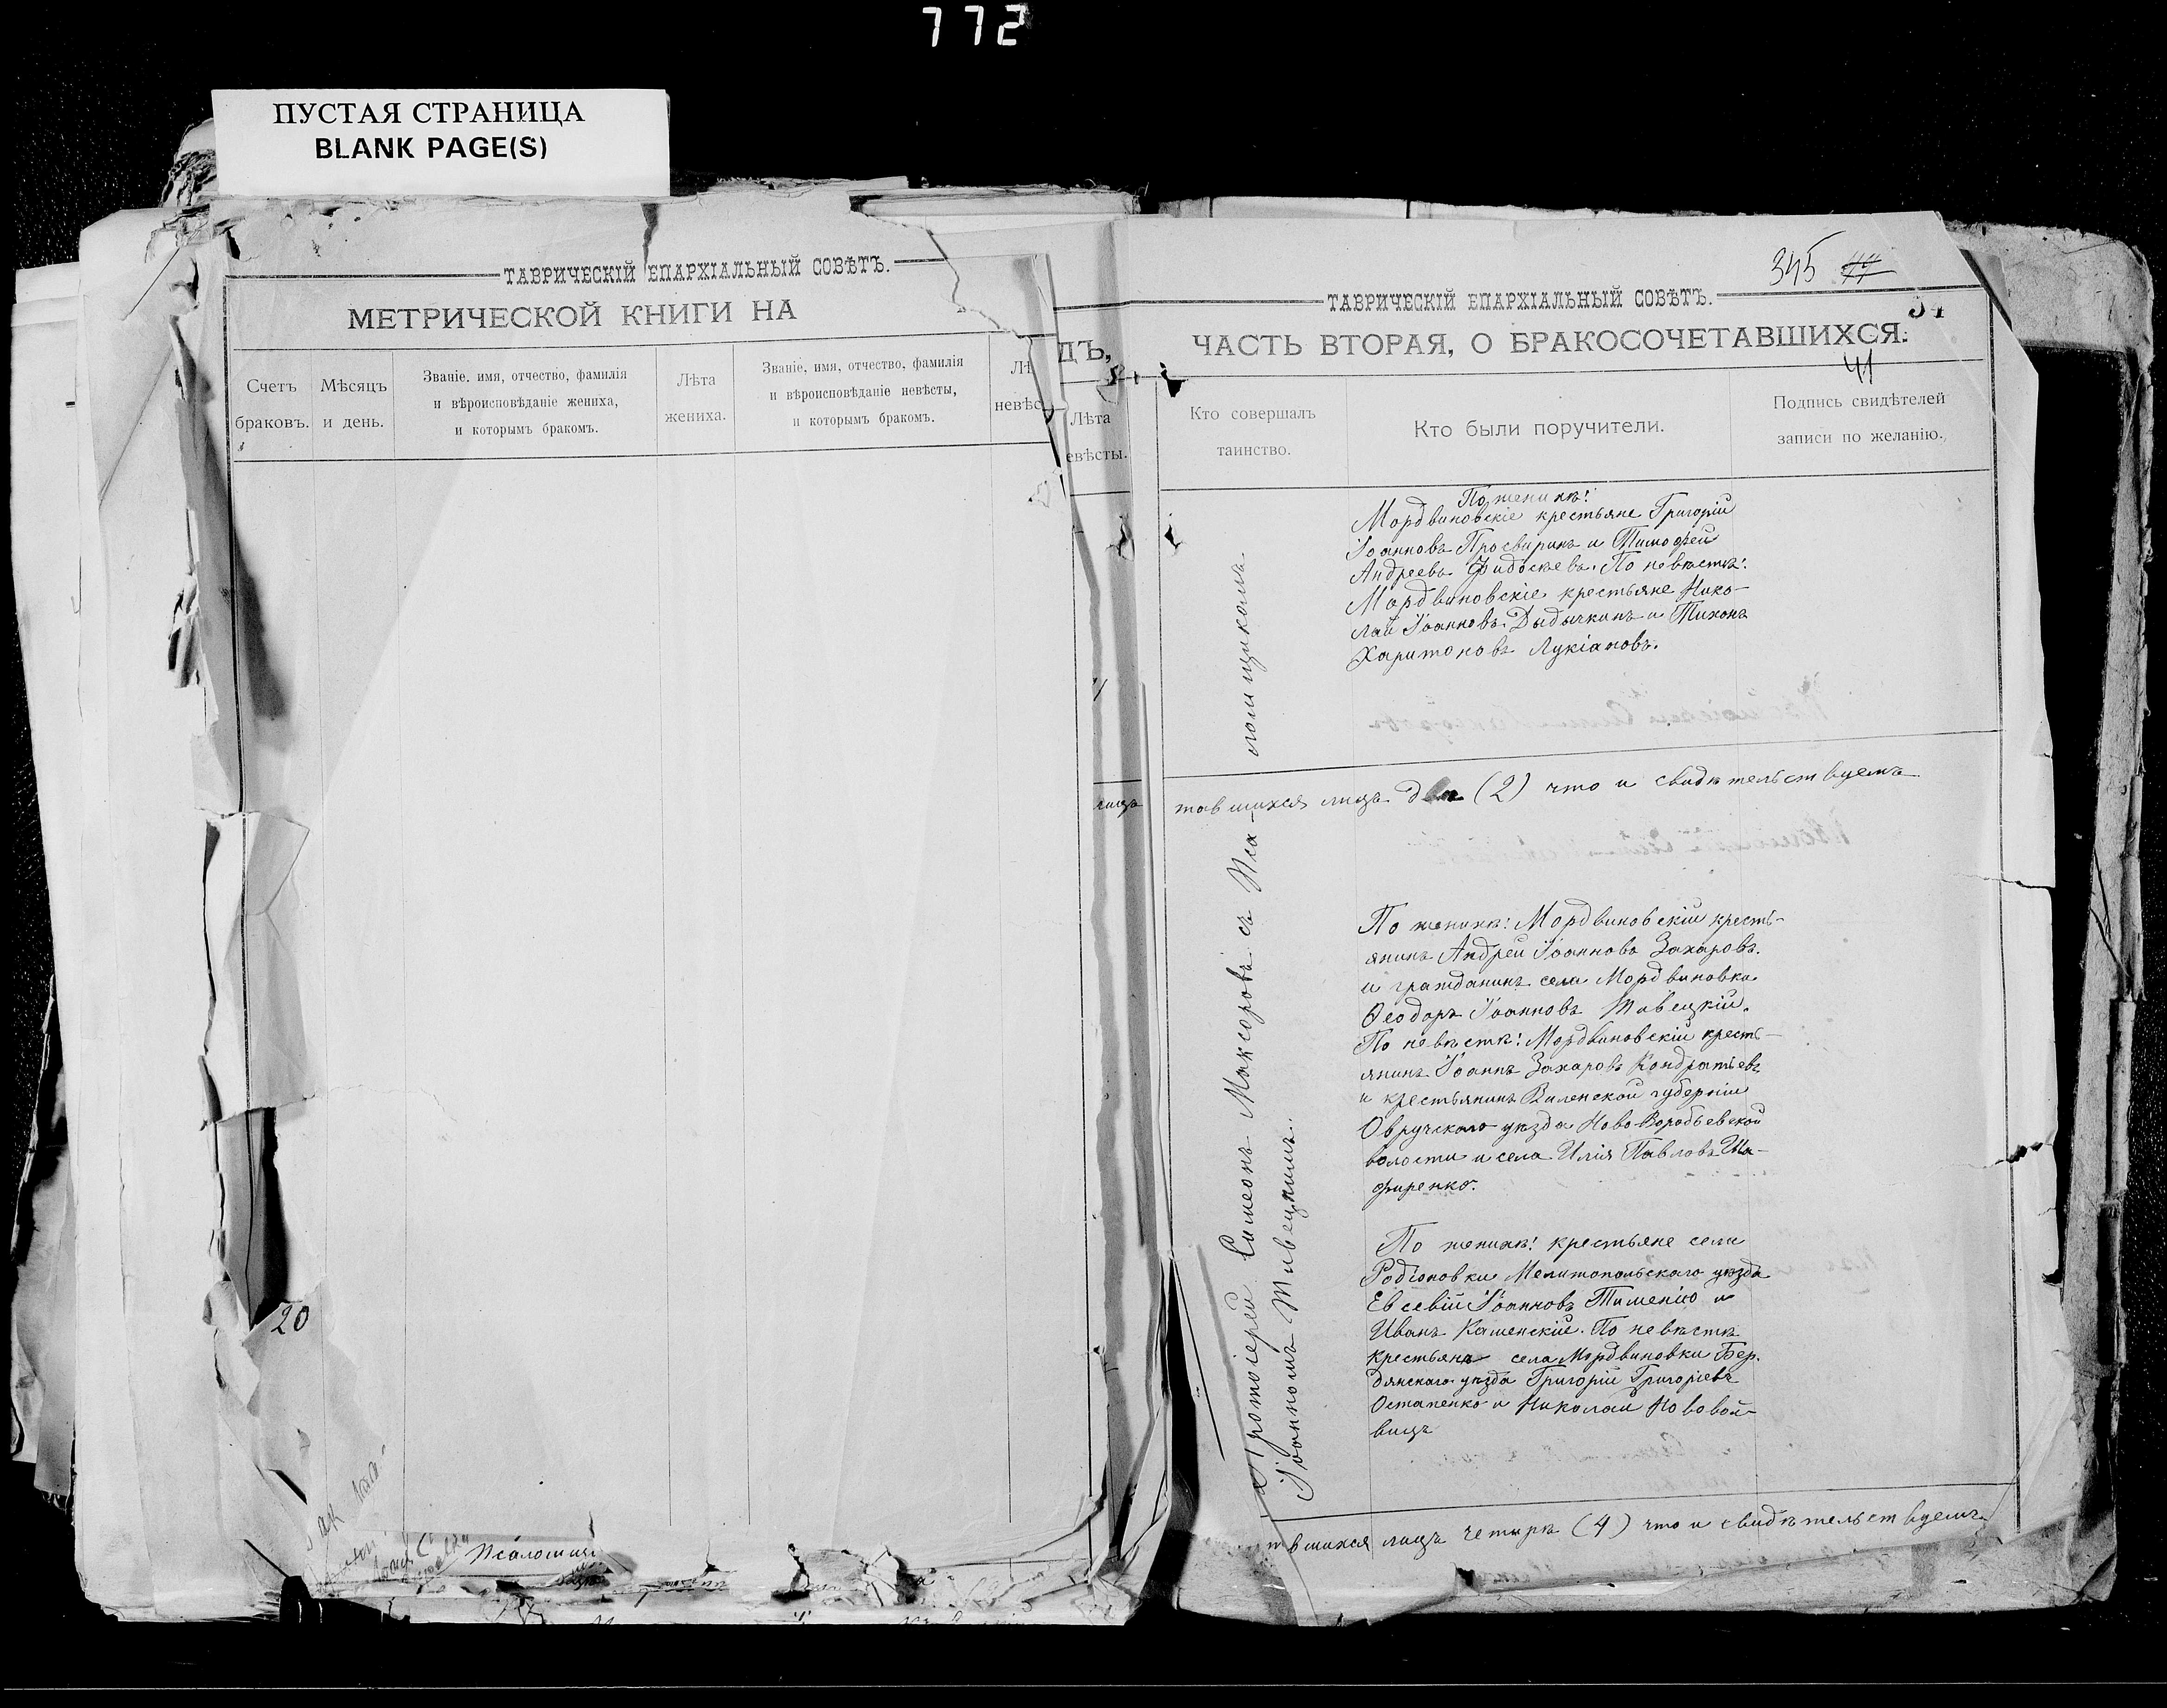 772
ПУСТАЯ СТРАНИЦА
BLANK PAGE(S)
ТАВРИЧЕСКІЙ ЕПАРХІАЛЬНЫЙ СОВѢТЪ.
МЕТРИЧЕСКОЙ КНИГИ НА
Счетъ браковъ.
Мѣсяцъ и день.
Званіе, имя, отчество, фамилія
и вѣроисповѣданіе жениха,
и которымъ бракомъ.
Лѣта жениха.
Званіе, имя, отчество, фамилія
и вѣроисповѣданіе невѣсты,
и которымъ бракомъ.
Лѣ
невѣс
20
Псаломщи
ДЪ,
Лѣта
евѣсты.
лицъ
345 77
34
ТАВРИЧЕСКІЙ ЕПАРХІАЛЬНЫЙ СОВѢТЪ.
ЧАСТЬ ВТОРАЯ, О БРАКОСОЧЕТАВШИХСЯ.
41
Кто совершалъ
таинство.
Кто были поручители.
Подпись свидѣтелей
записи по желанію.
По женихѣ:
Мордвиновскіе крестьяне Григорій
Іоанновъ Просвиринъ и Тимофей
Андреевъ Фидосѣевъ. По невѣстѣ:
Мордвиновскіе крестьяне Нико-
лай Іоанновъ Дыдычкинъ и Тихонъ
Харитоновъ Лукіановъ.
тавшихся лицъ два (2) что и свидѣтельствуемъ
Протоіерей Симеонъ Максоровъ съ Пса-
ломщикомъ
Іоанномъ Тивецкимъ.
По женихѣ: Мордвиновскій кресть-
янинъ Андрей Іоанновъ Захаровъ
и гражданинъ села Мордвиновки
Ѳеодоръ Іоанновъ Тивецкій.
По невѣстѣ: Мордвиновскій кресть-
янинъ Іоаннъ Захаровъ Кондратьевъ
и крестьянинъ Виленской губерніи
Овручскаго уѣзда Ново-Воробьевской
волости и села Илія Павловъ Ша-
фиренко.
По женихѣ: крестьяне села
Родіоновки Мелитопольскаго уѣзда
Евсевій Іоанновъ Тименко и
Иванъ Каменскій. По невѣстѣ
крестьяне села Мордвиновки Бер-
дянскаго уѣзда Григорій Григорьевъ
Остапенко и Николай Нововой-
вицъ
тавшихся лицъ четыре (4) что и свидѣтельствуемъ